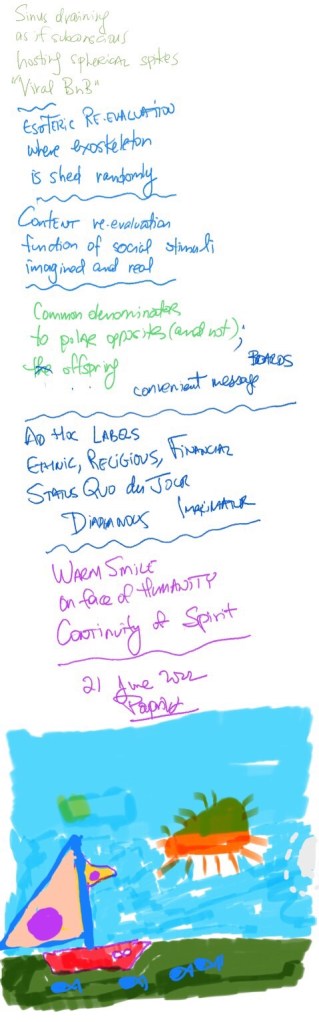 Sinus draining
as if subconscious
hosting spherical spikes
"Viral BnB"
ESOTERIC RE-EVALUATION
where exoskeleton
is shed randomly
CONTENT re-evaluation
function of social stimuli
imagined and real
Common denominators
to polar opposites (and not);
offspring BOARDS
convenient message
AD HOC LABELS
ETHNIC, RELIGIOUS, FINANCIAL
STATUS QUO du JOUR
DIAPHANOUS IMPRIMATUR
WARM SMILE
on face of HUMANITY
Continuity of Spirit
21 June 2022